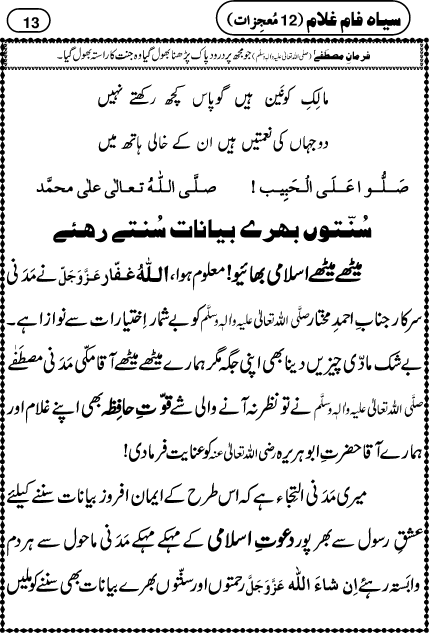 سیاہ فام غلام (12 مُعجِزات)
13
فرمانِ مصطَفٰے (صلی اللہ تعالیٰ علیہ والہٖ وسلّم) جو مجھ پر درود پاک پڑھنا بھول گیا وہ جنت کا راستہ بھول گیا۔
مالکِ کونَین ہیں گو پاس کچھ رکھتے نہیں
دو جہاں کی نعمتیں ہیں ان کے خالی ہاتھ میں
صَلُّوا عَلَی الْحَبِیب ! صلَّی اللہُ تعالٰی علٰی محمَّد
سُنّتوں بھرے بیانات سُنتے رھئے
میٹھے میٹھے اسلامی بھائیو! معلوم ہوا، اللہُ غفّار عَزَّوَجَلَّ نے مَدَنی
سرکار جناب احمدِ مختار صلَّی اللہ تعالیٰ علیہ والہٖ وسلَّم کو بے شمار اِختیارات سے نوازا ہے۔
بے شک مادّی چیزیں دینا بھی اپنی جگہ مگر ہمارے میٹھے میٹھے آقا مکّی مَدَنی مصطَفٰے
صلَّی اللہ تعالیٰ علیہ والہٖ وسلَّم نے تو نظر نہ آنے والی شے قوّتِ حافِظہ بھی اپنے غلام اور
ہمارے آقا حضرتِ ابو ہریرہ رضی اللہ تعالیٰ عنہ کو عنایت فرمادی!
میری مَدَنی التِجاء ہے کہ اس طرح کے ایمان افروز بیانات سننے کیلئے
عشقِ رسول سے بھرپور دعوتِ اسلامی کے مہکے مہکے مَدَنی ماحول سے ہر دم
وابَستہ رہئے اِن شاءَ اللہ عَزَّوَجَلَّ رحمتوں اور سنّتوں بھرے بیانات بھی سننے کو ملیں